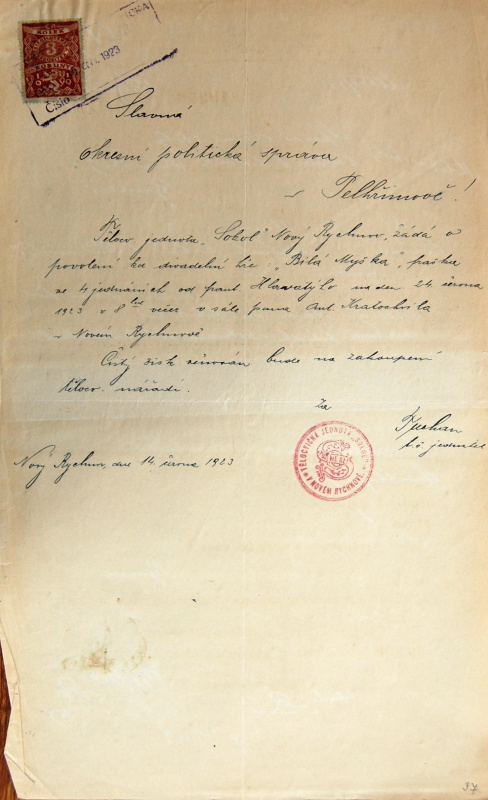 3
1923
Číslo
Slavná
okresní politická správa
v Pelhřimově!
Těloc. jednota „Sokol" Nový Rychnov, žádá o
povolení ku divadelní hře „Bílá Myška", fraška
ve 4 jednáních od frant. na den 24. června
1923 v 8 hod večer v sále pana Ant. Kratochvíla
v Novém Rychnově
Čistý zisk věnován bude na zakoupení
těloc. nářadí.
Za
t. č. jednatel
TĚLOCVIČNÁ JEDNOTA „SOKOL"
V NOVÉM RYCHNOVĚ
Nový Rychnov, dne 14. června 1923
37